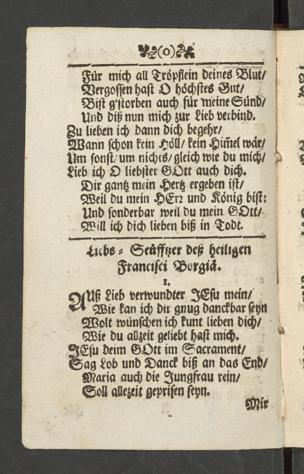 (0)
Für mich all Tröpflein deines Blut/
Vergossen hast O höchstes Gut/
Bist g'storben auch für meine Sünd/
Und diß nun mich zur Lieb verbind.
Zu lieben ich dann dich begehr/
Wann schon kein Höll/ kein Him̃el wär/
Um sonst/ um nichts/ gleich wie du mich/
Lieb ich O liebster GOtt auch dich.
Dir gantz mein Hertz ergeben ist/
Weil du mein HErz und König bist:
Und sonderbar weil du mein GOtt/
Will ich dich lieben biß in Todt.
Liebs-Seüfftzer deß heiligen
Francisci Borgiä.
1.
AUß Lieb verwundter JEsu mein/
Wie kan ich dir gnug danckbar seyn
Wolt wünschen ich kunt lieben dich/
Wie du allzeit geliebt hast mich.
JEsu deim GOtt im Sacrament/
Sag Lob und Danck biß an das End/
Maria auch die Jungfrau rein/
Soll allezeit geprisen seyn.
Mir